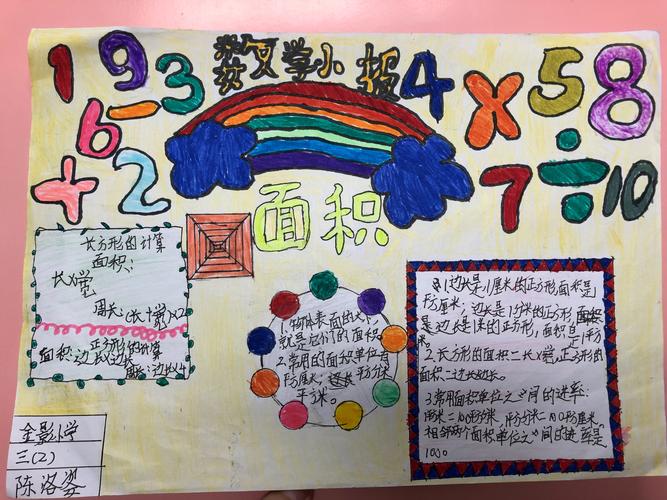 1 9 3 数学小报 4 × 5 8
6 - + 2 7 ÷ 10
面积
长方形的计算
面积:
长×宽
周长:(长+宽)×2
正方形的计算
面积:边长×边长
周长:边长×4
1.物体表面的大小
就是它们的面积
2.常用的面积单位有
平方厘米,平方分米
平方米。
1.边长是1厘米的正方形,面积是
1平方厘米;边长是1分米的正方形,面积
是边长是1米的正方形,面积是1平方
2.长方形的面积=长×宽,正方形的
面积=边长×边长。
3.常用面积单位之间的进率:
1平方米=100平方分米,1平方分米=100平方厘米,
相邻两个面积单位之间的进率是
100
金影小学
三(2)
陈洛姿